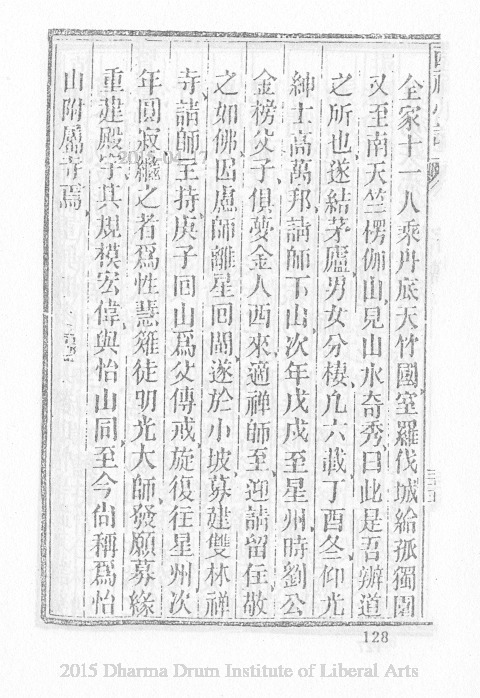 全家十一人乘丹底天竹國室羅伐城給孤獨園
又至南天竺楞伽山見山水奇秀曰此是吾辦道
之所也遂結茅廬男女分棲凢六載丁酉冬仰光
紳士高萬邦請師下山次年戊戌至星州時劉公
金榜父子俱夢金人西來適禪師至迎請留住敬
之如佛因慮師離星回閩遂於小坡募建雙林禪
寺請師主持庚子回山為父傳戒旋復往星州次
年圓寂繼之者為性慧雉徒明光大師發願募緣
重建殿宇其規模宏偉與怡山同至今尙稱為怡
山附屬寺焉
128
2015 Dharma Drum Institute of Liberal Arts